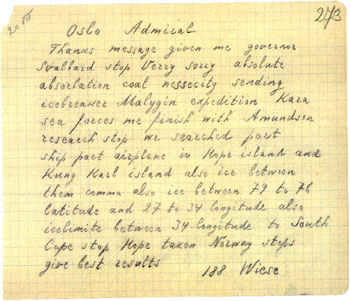 20 VIII
273
Oslo Admiral
Thanks message given me governor
Svalbard stop Verry sorry absolute
absorbation coal nessecity sending
icebreaker Malygin expedition Kara
sea forces me finish with Amundsen
research stop we searched part
ship part airplane in Hope island and
Kung Karl island also ice between
them comma also ice between 79 to 76
latitude and 27 to 34 longitude also
icelimite between 34 longitude to South
Cope stop Hope taken Norway steps
give best results
188 Wiese